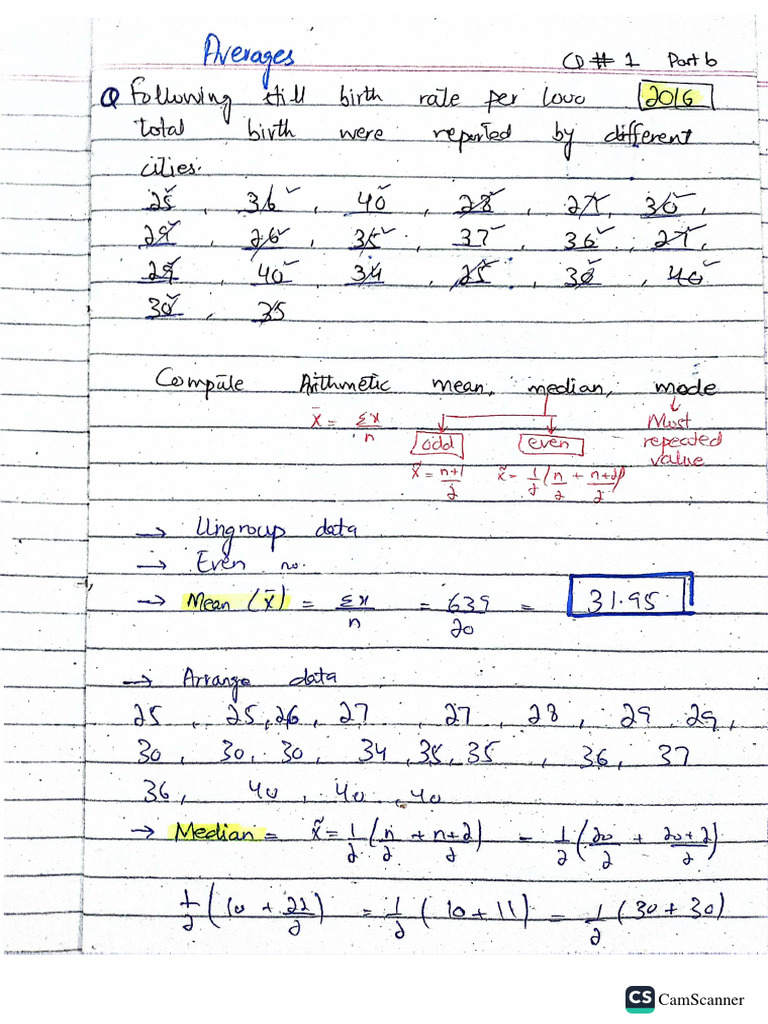 Averages CD # 1 Part b
Q Following still birth rate per 1000 2016
total birth were reported by different
cities.
25, 36, 40, 28, 27, 30,
29, 26, 35, 37, 36, 27,
29, 40, 34, 25, 30, 40
30, 35
Compute Arithmetic mean, median, mode
x̄ = Σx/n
odd even
x̃ = n+1/2 x̃ = 1/2 (n/2 + n+2/2)
Most
repeated
value
→ Ungroup data
→ Even no.
→ Mean (x̄) = Σx/n = 639/20 = 31.95
→ Arrange data
25, 25, 26, 27, 27, 28, 29, 29,
30, 30, 30, 34, 35, 35, 36, 37
36, 40, 40, 40
→ Median = x̃ = 1/2 (n/2 + n+2/2) = 1/2 (20/2 + 20+2/2)
1/2 (10 + 22/2) = 1/2 (10 + 11) = 1/2 (30 + 30)
CS CamScanner